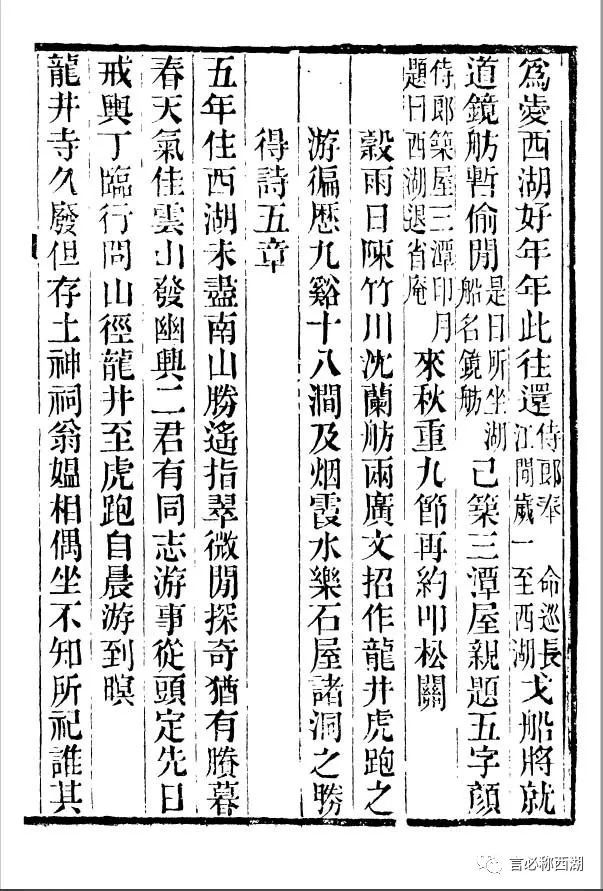 為愛西湖好年年此往還侍郎奉 命巡長江閒歲一至西湖戈船將就
道鏡舫暫偷閒是日所坐湖船名鏡舫已築三潭屋親題五字顏
侍郎築屋三潭印月題曰西湖退省庵來秋重九節再約叩松關
穀雨日陳竹川沈蘭舫兩廣文招作龍井虎跑之
游徧歷九谿十八澗及烟霞水樂石屋諸洞之勝
得詩五章
五年住西湖未盡南山勝遙指翠微閒探奇猶有賸暮
春天氣佳雲山發幽興二君有同志游事從頭定先日
戒輿丁臨行問山徑龍井至虎跑自晨游到暝
龍井寺久廢但存土神祠翁媼相偶坐不知所祀誰其
言必称西湖